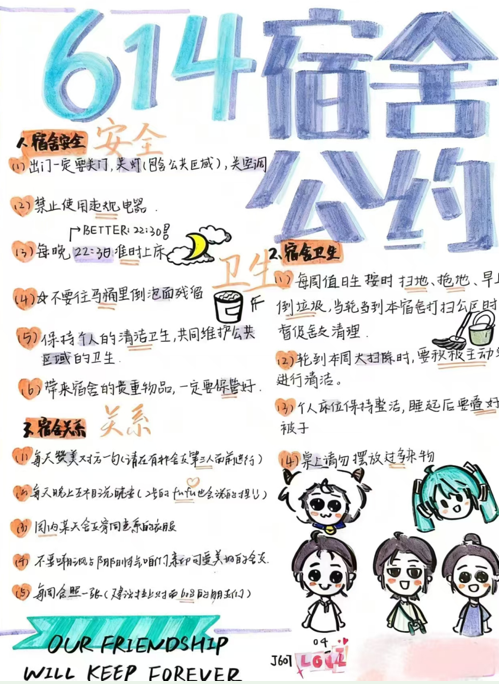 614宿舍
公约
1.宿舍安全 安全
(1)出门一定要关门,关灯(宿舍公共区域),关空调
(2)禁止使用违规电器.
BETTER:22:30前
(3)每晚22:30准时上床
(4)☆不要往马桶里倒泡面残留
(5)保持个人的清洁卫生,共同维护公共
区域的卫生.
(6)带来宿舍的贵重物品,一定要保管好.
2.宿舍卫生 卫生
(1)每周值日生按时扫地、拖地、早上
倒垃圾,当轮到本宿舍打扫公区时
督促舍友清理.
(2)轮到本周大扫除时,要积极主动
进行清洁。
(3)个人床位保持整洁,睡起后要叠好
被子
(4)桌上请勿摆放过多杂物
3.宿舍关系 关系
(1)每天赞美对方一句(请在有种会友第三人面前进行)
(2)每天晚上互相说晚安
(3)周内某天会友穿同色系的衣服
(4)不要
(5)每周合照一张
OUR FRIENDSHIP
WILL KEEP FOREVER
04
J607 LOVE